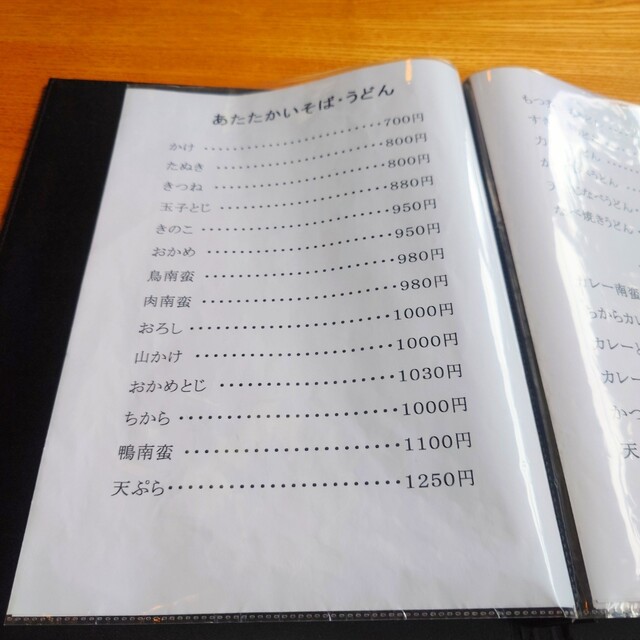 あたたかいそば・うどん
かけ ･････････････････････････ 700円
たぬき ･････････････････････････ 800円
きつね ･････････････････････････ 800円
玉子とじ ･････････････････････････ 880円
きのこ ･････････････････････････ 950円
おかめ ･････････････････････････ 950円
鳥南蛮 ･････････････････････････ 980円
肉南蛮 ･････････････････････････ 980円
おろし ･････････････････････････ 1000円
山かけ ･････････････････････････ 1000円
おかめとじ ･････････････････････････ 1030円
ちから ･････････････････････････ 1000円
鴨南蛮 ･････････････････････････ 1100円
天ぷら ･････････････････････････ 1250円
カレー南蛮
カレー
カレー
かつ
天